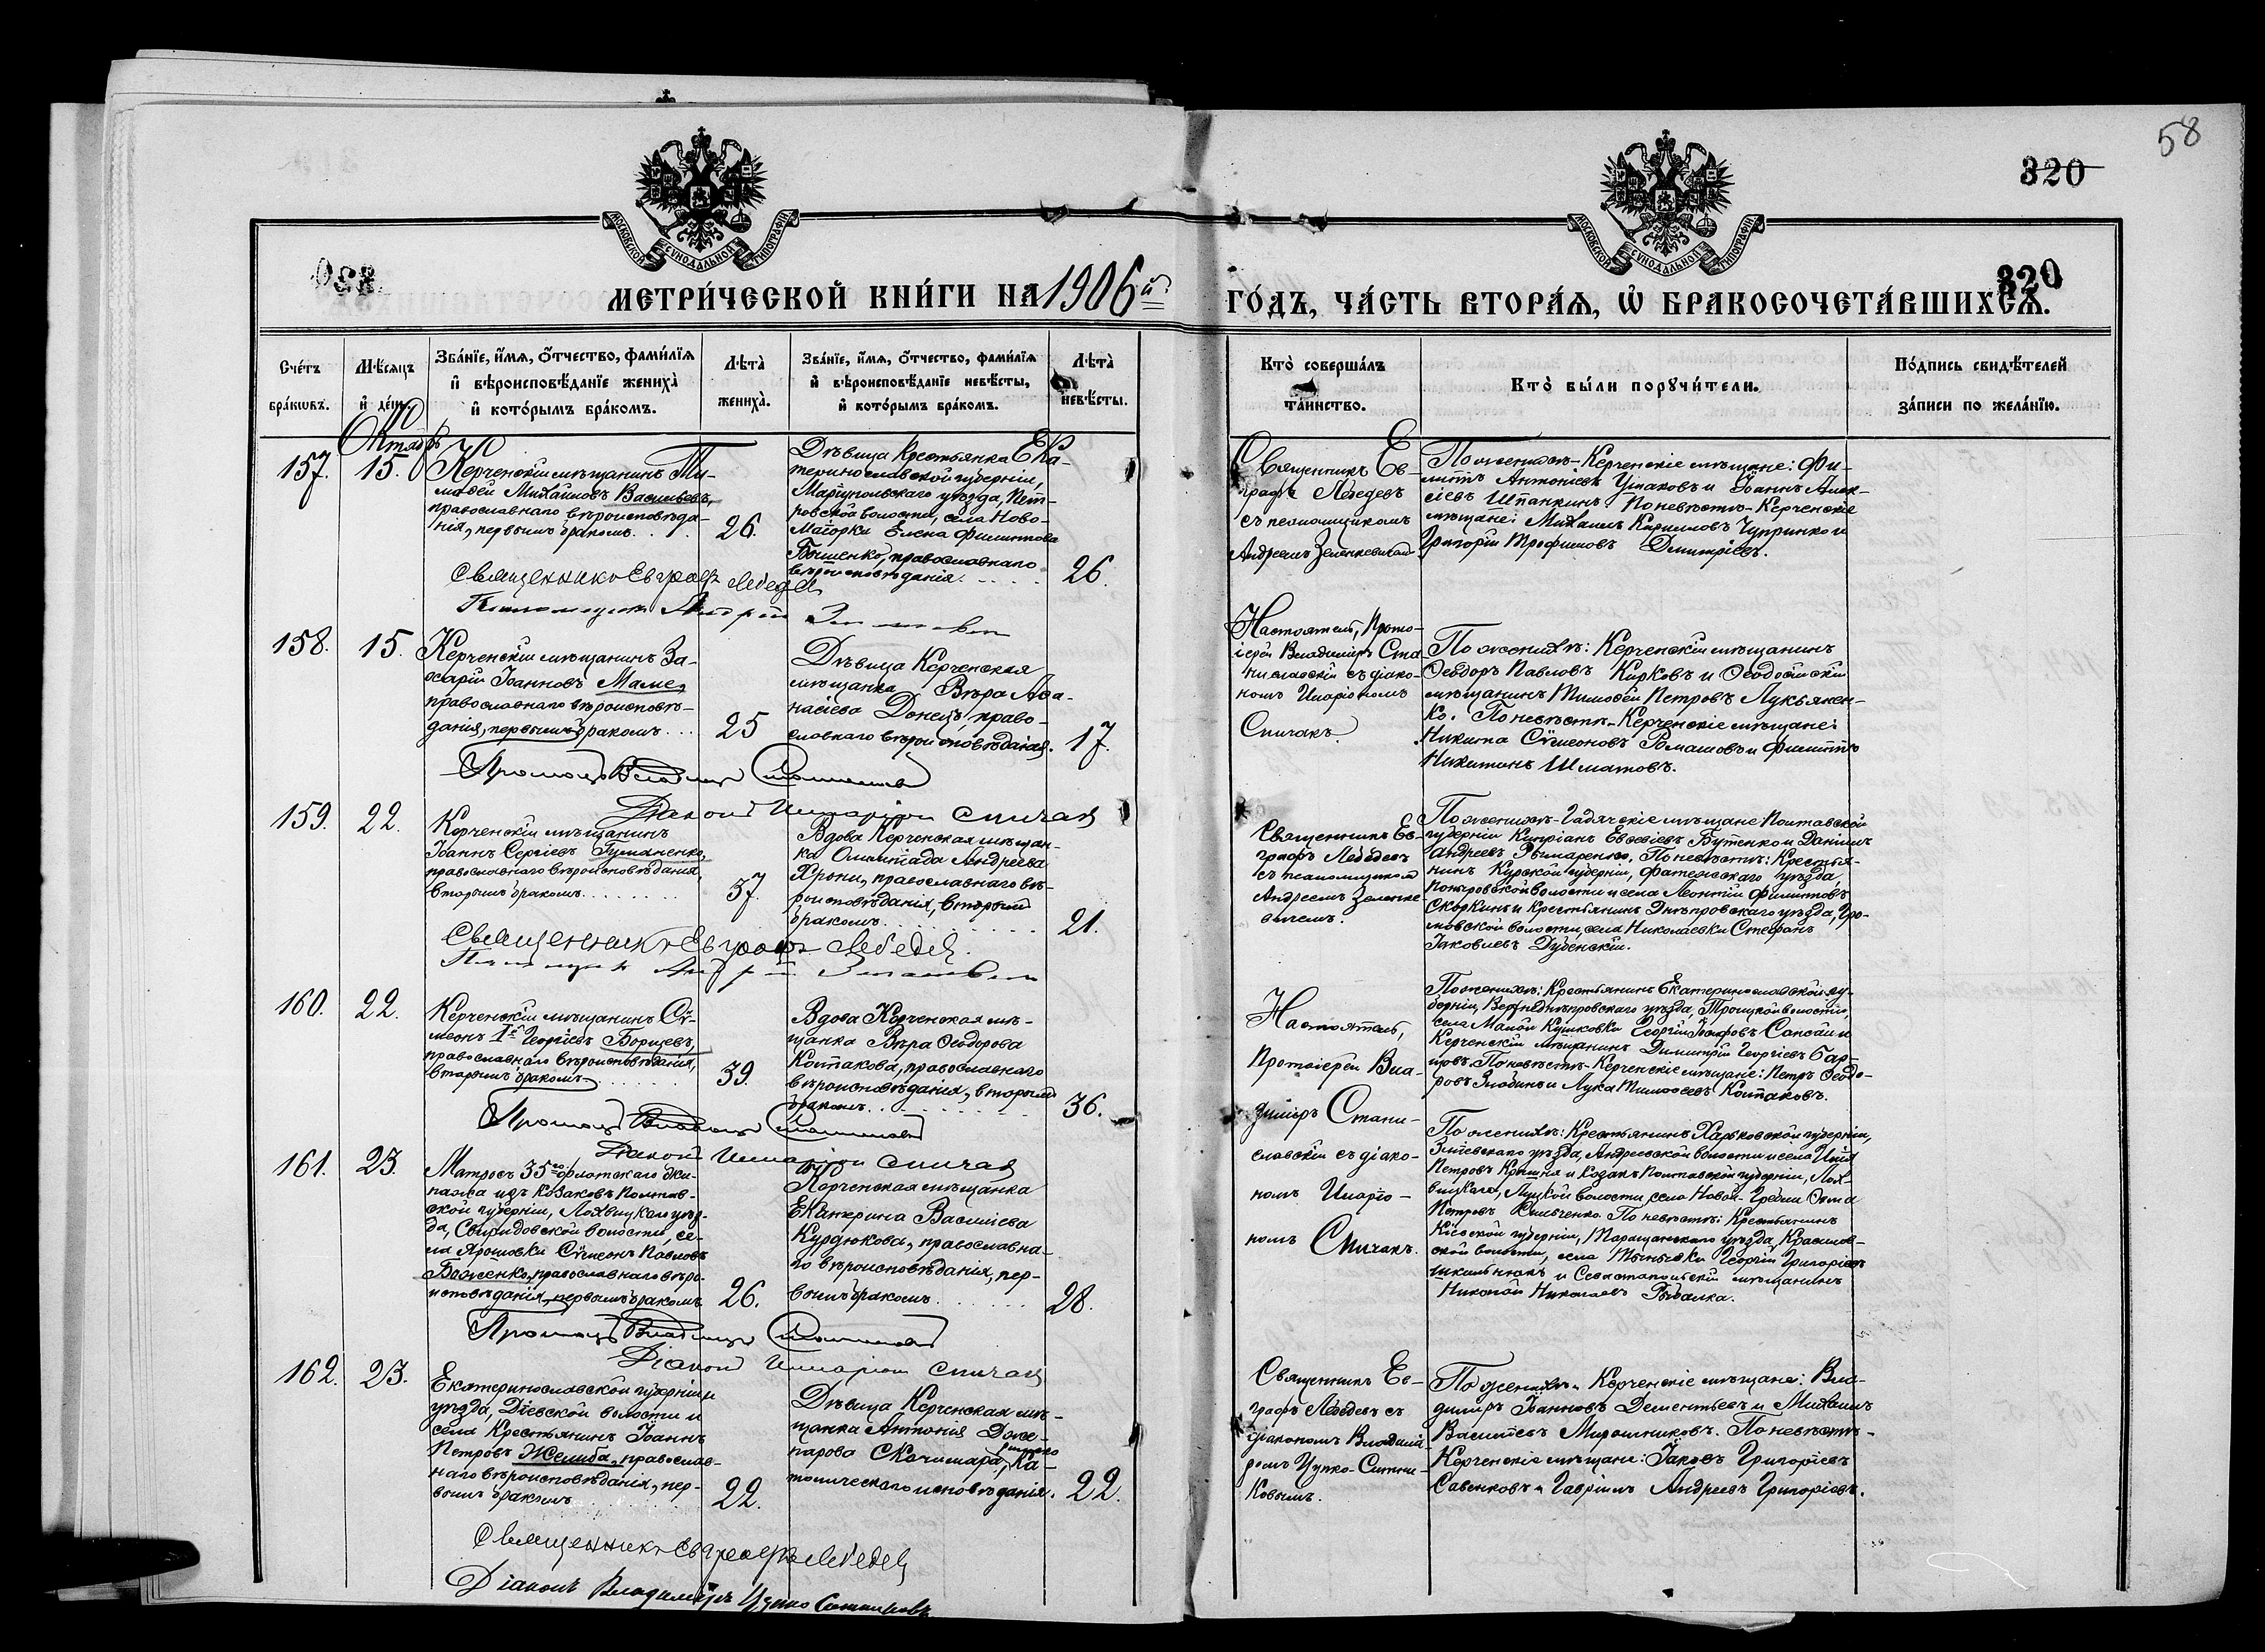 58
320
320
МОСКОВСКОЙ СѴНОДАЛЬНОЙ ТИПОГРАФІИ
МОСКОВСКОЙ СѴНОДАЛЬНОЙ ТИПОГРАФІИ
МЕТРИ́ЧЕСКОЙ КНИ́ГИ НА 1906й
ГО́ДЪ, ЧА́СТЬ ВТОРА́Ѧ, Ѿ БРАКОСОЧЕТА́ВШИХСѦ.
Сче́тъ бра́кωвъ.
Мѣ́сѧцъ и҆ де́нь.
Зва́нїе, и҆́мѧ, ѻ҆́тчество, фамѝлїѧ
и҆ вѣроисповѣ́данїе женихà
и҆ кото́рымъ бра́комъ.
Лѣ́та̀
женихà.
Зва́нїе, и҆́мѧ, ѻ҆́тчество, фамѝлїѧ
и҆ вѣроисповѣ́данїе невѣ́сты,
и҆ кото́рымъ бра́комъ.
Лѣ́та̀
невѣ́сты.
Кто̀ соверша́лъ
та́инство.
Кто̀ бы́ли порꙋчи́тели.
По́дпись свидѣ́телей
за́писи по жела́нїю.
Октябрь
157.
15.
Керченскій мѣщанинъ Ти-
моѳей Михайловъ Васильевъ,
православнаго вѣроисповѣда-
нія, первымъ бракомъ
26.
Дѣвица Крестьянка Ека-
теринославской губерніи,
Маріупольскаго уѣзда, Пет-
ровской волости, села Ново-
Маіорки Елена Филиппова
Бышенко, православнаго
вѣроисповѣданія.
26.
Священникъ Ев-
графъ Лебедевъ
съ псаломщикомъ
Андреемъ
По женихѣ-Керченскіе мѣщане: Фи-
липпъ Антоніевъ Ушаковъ и Іоаннъ Алек-
сѣевъ Штанкинъ. По невѣстѣ-Керченскіе
мѣщане: Михаилъ Кирилловъ Чупринко и
Григорій Трофимовъ Димитріевъ.
Священникъ Евграфъ Лебедев
Псаломщикъ Андрей
158.
15.
Керченскій мѣщанинъ За-
харій Іоанновъ Мамец
православнаго вѣроисповѣ-
данія, первымъ бракомъ
25
Дѣвица Керченская
мѣщанка Вѣра Аѳа-
насіева Донецъ, право-
славнаго вѣроисповѣданія.
17.
Настоятель, Прото-
іерей Владиміръ Ста-
ниславскій съ діако-
номъ Иларіономъ
Спичакъ.
По женихѣ: Керченскій мѣщанинъ
Ѳеодоръ Павловъ Кирковъ и Ѳеодосійскій
мѣщанинъ Тимоѳей Петровъ Лукьянен-
ко. По невѣстѣ-Керченскіе мѣщане:
Никита Сѵмеоновъ Ромашовъ и Филиппъ
Никитинъ Шматовъ.
Діаконъ Иларіон Спичак
159.
22.
Керченскій мѣщанинъ
Іоаннъ Сергіевъ Гуманенко,
православнаго вѣроисповѣданія,
вторымъ бракомъ
37.
Вдова Керченская мѣщан-
ка Олимпіада Андреева
Хрони, православнаго вѣ-
роисповѣданія, вторымъ
бракомъ
21.
Священникъ Ев-
графъ Лебедевъ
съ псаломщикомъ
Андреемъ
По женихѣ-Гадячскіе мѣщане Полтавской
губерніи Кипріанъ Евсевіевъ Бутенко и Даніилъ
Андреевъ Рымаренко. По невѣстѣ: Крестья-
нинъ Курской губерніи, Фатежскаго уѣзда,
волости и села Леонтій Филипповъ
Скоркинъ и Крестьянинъ Днѣпровскаго уѣзда,
волости, села Николаевки Стефанъ
Іаковлевъ Дубенскій.
Священникъ Евграф Лебедев.
160.
22.
Керченскій мѣщанинъ Сѵ-
меонъ 1й Георгіевъ Борщевъ,
православнаго вѣроисповѣданія,
вторымъ бракомъ
39.
Вдова Керченская мѣ-
щанка Вѣра Ѳеодорова
Колпакова, православнаго
вѣроисповѣданія, вторымъ
бракомъ
36.
Настоятель,
Протоіерей Вла-
диміръ Стани-
славскій съ діако-
номъ Иларіо-
номъ Спичакъ.
По женихѣ: Крестьянинъ Екатеринославской гу-
берніи, Верхнеднѣпровскаго уѣзда, Троицкой волости,
села Малой Георгій
Керченскій мѣщанинъ Димитрій Георгіевъ Бор-
щовъ. По невѣстѣ-Керченскіе мѣщане: Петръ Ѳеодо-
ровъ Злобинъ и Лука Тимоѳеевъ Колпаковъ.
Діаконъ Иларіон Спичак
161.
23.
Матросъ 35го флотскаго эки-
пажа изъ козаковъ Полтав-
ской губерніи, Лохвицкаго уѣз-
да, Свиридовской волости, се-
ла Ярошовки Сѵмеонъ Павловъ
Баженко, православнаго вѣро-
исповѣданія, первымъ бракомъ
26.
Керченская мѣщанка
Екатерина Васильева
Курдюкова, православна-
го вѣроисповѣданія, пер-
вымъ бракомъ
28.
По женихѣ: Крестьянинъ Харьковской губерніи,
Зміевскаго уѣзда, Андреевской волости и села Илія
Петровъ и Козакъ Полтавской губерніи, Лох-
вицкаго, Луцкой волости, села Новой-Гребли
Петровъ По невѣстѣ: Крестьянинъ
Кіевской губерніи, Таращанскаго уѣзда,
волости, села Георгій Григоріевъ
и Севастопольскій мѣщанинъ
Николай Николаевъ Рыбалка.
Діаконъ Иларіон Спичак
162.
23.
Екатеринославской губерніи и
уѣзда, Діевской волости и
села Крестьянинъ Іоаннъ
Петровъ Желиба, православ-
наго вѣроисповѣданія, пер-
вымъ бракомъ
22.
Дѣвица Керченская мѣ-
щанка Антонія
Скочимара, римско ка-
толическаго исповѣданія.
22.
Священникъ Ев-
графъ Лебедевъ съ
діакономъ Владимі-
ромъ Цупко-Ситни-
ковымъ.
По женихѣ-Керченскіе мѣщане: Вла-
диміръ Іоанновъ Дементьевъ и Михаилъ
Васильевъ Мирошниковъ. По невѣстѣ-
Керченскіе мѣщане: Іаковъ Григоріевъ
Савенковъ и Гавріилъ Андреевъ Григоріевъ.
Священникъ Евграфъ Лебедев
Діаконъ Владиміръ Цупко Ситниковъ